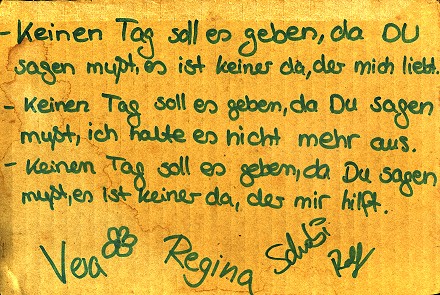 - Keinen Tag soll es geben, da DU
sagen mußt, es ist keiner da, der mich liebt.
- Keinen Tag soll es geben, da Du sagen
mußt, ich halte es nicht mehr aus.
- Keinen Tag soll es geben, da Du sagen
mußt, es ist keiner da, der mir hilft.
Vera Regina Schubi Rolf